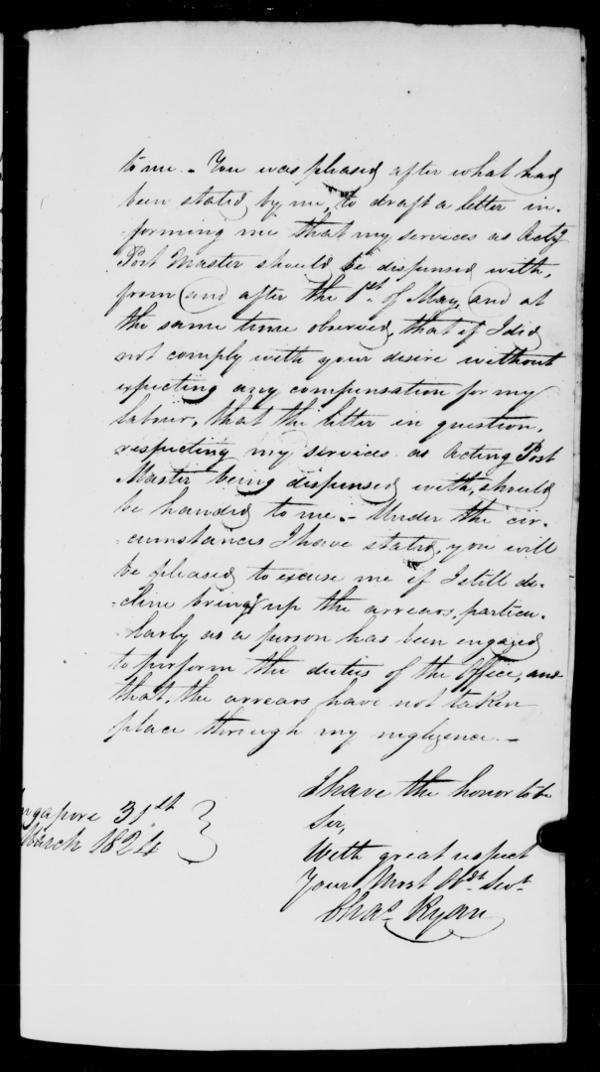 to me. - You was pleased after what had
been stated by me, to draft a letter in-
-forming me that my services as Actg
Post Master should be dispensed with,
from and after the 1st of May, and at
the same time observed, that if I did
not comply with your desire without
expecting any compensation for my
labour, that the letter in question,
respecting my services as Acting Post
Master being dispensed with, should
be handed to me. - Under the cir-
-cumstances I have stated, you will
be pleased to excuse me if I still de-
-cline bringg up the arrears, particu-
-larly as a person has been engaged
to perform the duties of the Office, and
that, the arrears have not taken
place through my negligence. -
I have the honor to be
Sir,
With great respect
Your Most Obt Servt
Chas Ryan
ngapore 31st
March 1824